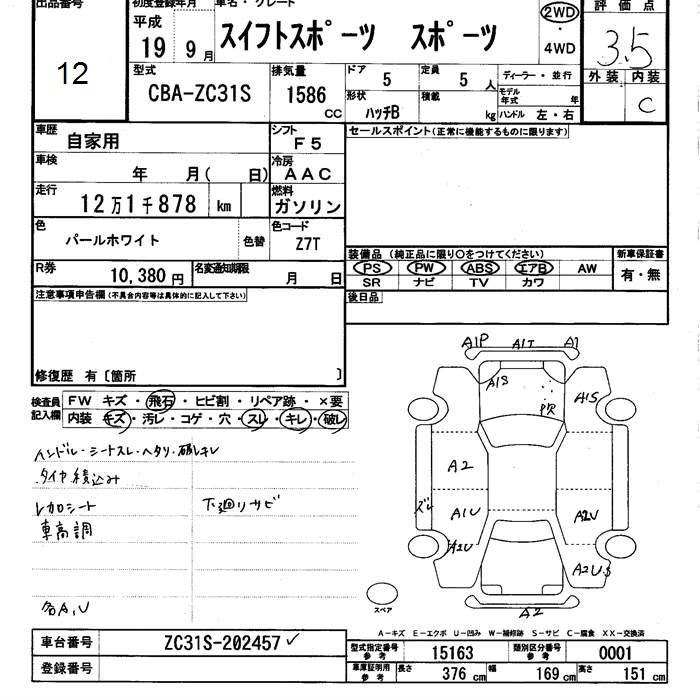 出品番号
12
初度登録年月 車名・グレード
平成
19 9月
スイフトスポーツ スポーツ
2WD
・
4WD
評価点
3.5
外装 内装
C
型式
CBA-ZC31S
排気量
1586
CC
ドア 5
定員 5 人
形状 ハッチB
積載 kg
ディーラー・並行
モデル年式 年
ハンドル 左・右
車歴 自家用
シフト F5
セールスポイント(正常に機能するものに限ります)
車検 年 月( 日)
冷房 AAC
走行 12万1千878 km
燃料 ガソリン
色 パールホワイト 色替
色コード Z7T
装備品 (純正品に限り○をつけてください)
新車保証書
PS PW ABS エアB AW
SR ナビ TV カワ
有・無
R券 10,380円
名変通知期限 月 日
後日品
注意事項申告欄(不具合内容等は具体的に記入して下さい)
修復歴 有〔箇所 〕
検査員記入欄
FW キズ・飛石・ヒビ割・リペア跡・×要
内装 キズ・汚レ・コゲ・穴・スレ・キレ・破レ
ハンドル・シートスレ・ヘタリ・破レキレ
タイヤ積込み
レカロシート
下廻リサビ
車高調
各A,U
A1P A1T A1
A1S
A1S
A2
ズレ
A1U
A2U
A2U
A2US
A2
スペア
A-キズ E-エクボ U-凹み W-補修跡 S-サビ C-腐食 XX-交換済
車台番号 ZC31S-202457 ✓
登録番号
型式指定番号 参考 15163
類別区分番号 参考 0001
車庫証明用 参考 長さ 376 cm 幅 169 cm 高さ 151 cm